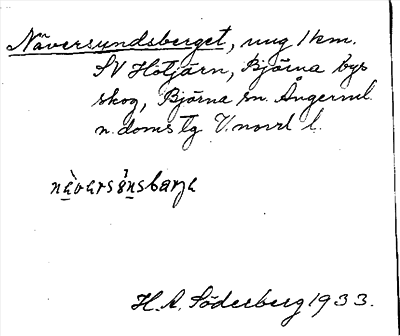 Näversundsberget, ung 1 km.
SV Hötjärn, Björna bys
skog, Björna sn. Ångerml.
n. doms tg V. norrl l.
H. A. Söderberg 1933.